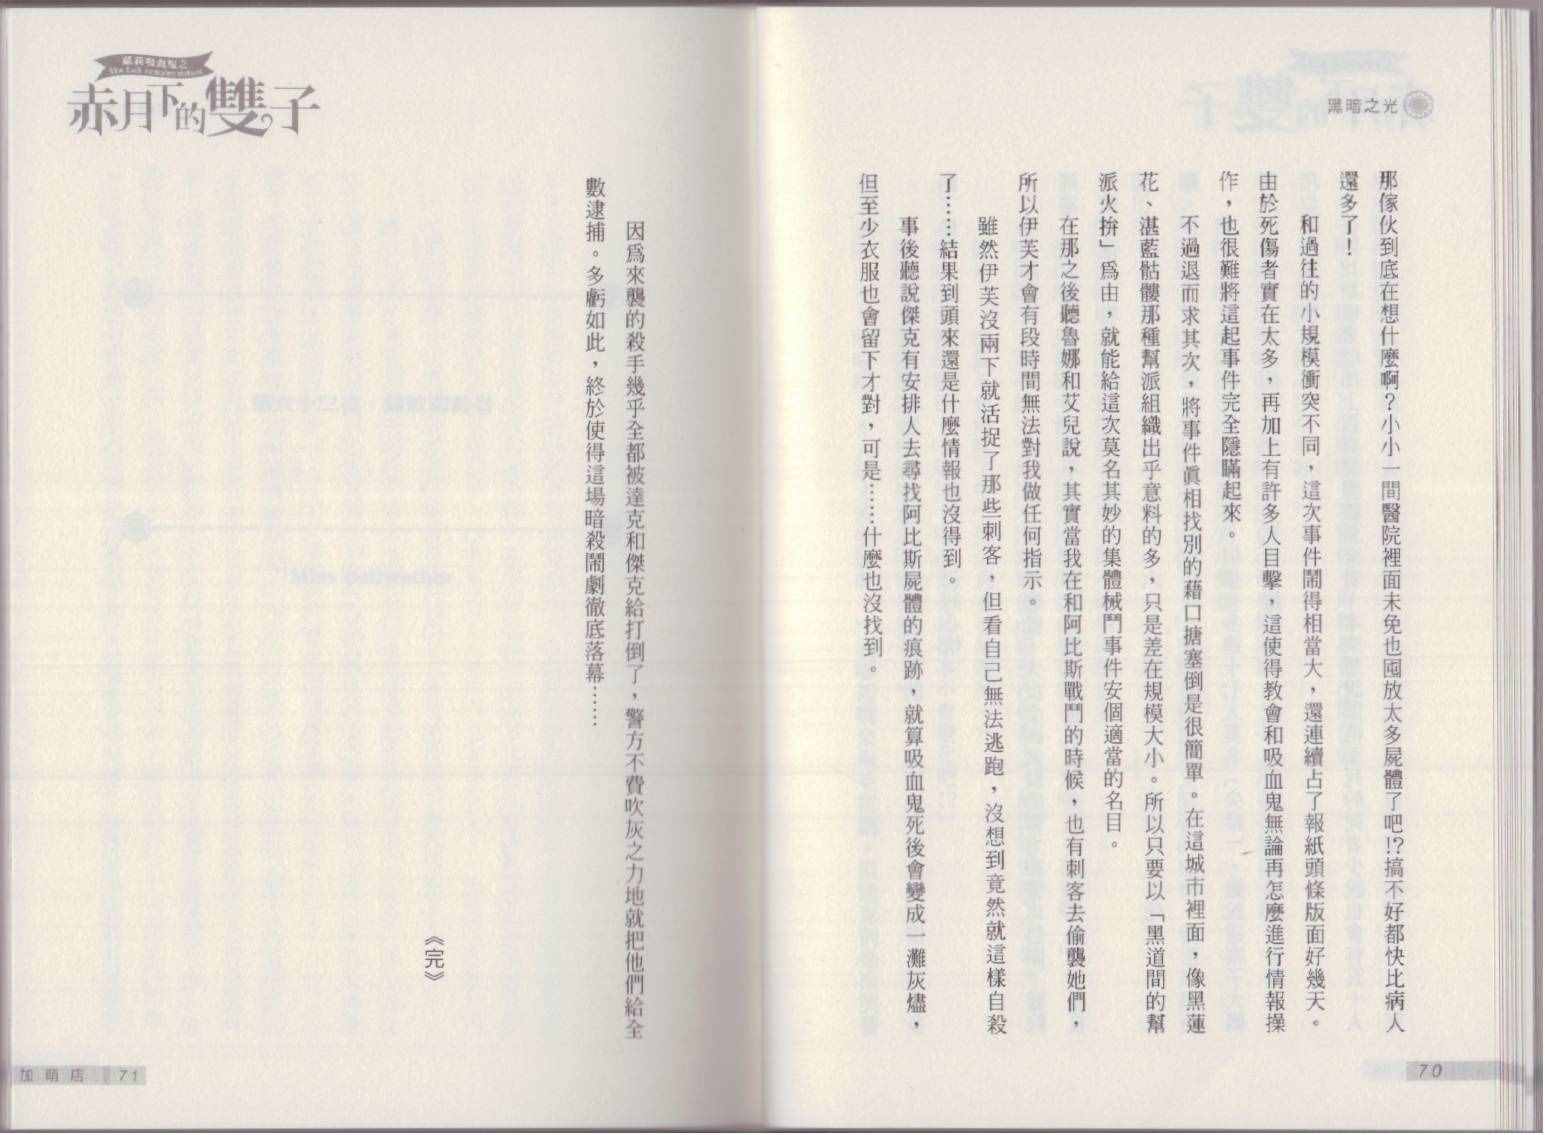 黑暗之光
那傢伙到底在想什麼啊？小小一間醫院裡面未免也囤放太多屍體了吧!?搞不好都快比病人
還多了！
和過往的小規模衝突不同，這次事件鬧得相當大，還連續占了報紙頭條版面好幾天。
由於死傷者實在太多，再加上有許多人目擊，這使得教會和吸血鬼無論再怎麼進行情報操
作，也很難將這起事件完全隱瞞起來。
不過退而求其次，將事件眞相找別的藉口搪塞倒是很簡單。在這城市裡面，像黑蓮
花、湛藍骷髏那種幫派組織出乎意料的多，只是差在規模大小。所以只要以「黑道間的幫
派火拚」爲由，就能給這次莫名其妙的集體械鬥事件安個適當的名目。
在那之後聽魯娜和艾兒說，其實當我在和阿比斯戰鬥的時候，也有刺客去偷襲她們，
所以伊芙才會有段時間無法對我做任何指示。
雖然伊芙沒兩下就活捉了那些刺客，但看自己無法逃跑，沒想到竟然就這樣自殺
了……結果到頭來還是什麼情報也沒得到。
事後聽說傑克有安排人去尋找阿比斯屍體的痕跡，就算吸血鬼死後會變成一灘灰燼，
但至少衣服也會留下才對，可是……什麼也沒找到。
70
赤月下的雙子
因爲來襲的殺手幾乎全都被達克和傑克給打倒了，警方不費吹灰之力地就把他們給全
數逮捕。多虧如此，終於使得這場暗殺鬧劇徹底落幕……
《完》
加萌店 71